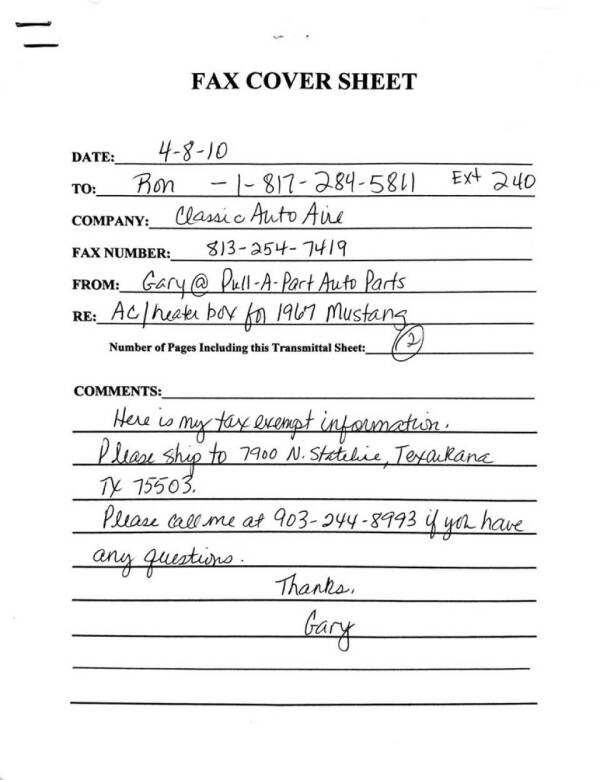 FAX COVER SHEET
DATE: 4-8-10
TO: Ron - 1-817-284-5811 Ext 240
COMPANY: Classic Auto Aire
FAX NUMBER: 813-254-7419
FROM: Gary @ Pull-A-Part Auto Parts
RE: AC/heater box for 1967 Mustang
Number of Pages Including this Transmittal Sheet: 2
COMMENTS:
Here is my tax exempt information.
Please ship to 7900 N. Stateline, Texarkana
TX 75503.
Please call me at 903-244-8993 if you have
any questions.
Thanks,
Gary